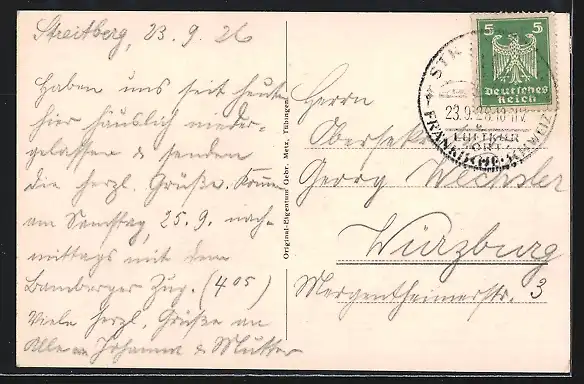 Streitberg, 23.9.26
Haben uns seit heute
hier häuslich nieder-
gelassen & senden
die herzl. Grüße. Komme
am Samstag, 25.9. nach-
mittags mit dem
Bamberger Zug. (4 05)
Viele herzl. Grüße an
Alle Johanna & Mutter
Original-Eigentum Gebr. Metz, Tübingen
5 5
Deutsches
Reich
23.9.26
LUFTKUR
ORT
FRÄNKISCHE SCHWEIZ
Herrn
Georg Wechsler
Würzburg
Mergentheimerstr. 3